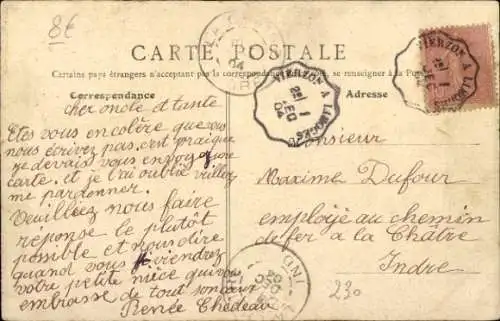 8€
CARTE POSTALE
Certains pays étrangers n'acceptant pas la correspondance se renseigner à la
Correspondance
Adresse
VIERZON A LIMOGES
2E
1
DEC
04
VIERZON A LIMOGES
2E
1
DEC
04
cher oncle et tante
Etes vous encolère que vous
nous écrivez pas c'est praique
je devais vous envoyer une
carte, et je l'ai oublié veillez
me pardonner.
Veuilleez nous faire
réponse le plutôt
possible et nous dire
quand vous viendrez
votre petite nièce qui vous
embrasse de tout son cœur
Renée Chédeau
Monsieur
Maxime Dufour
employé au chemin
de fer a la Châtre
Indre
230